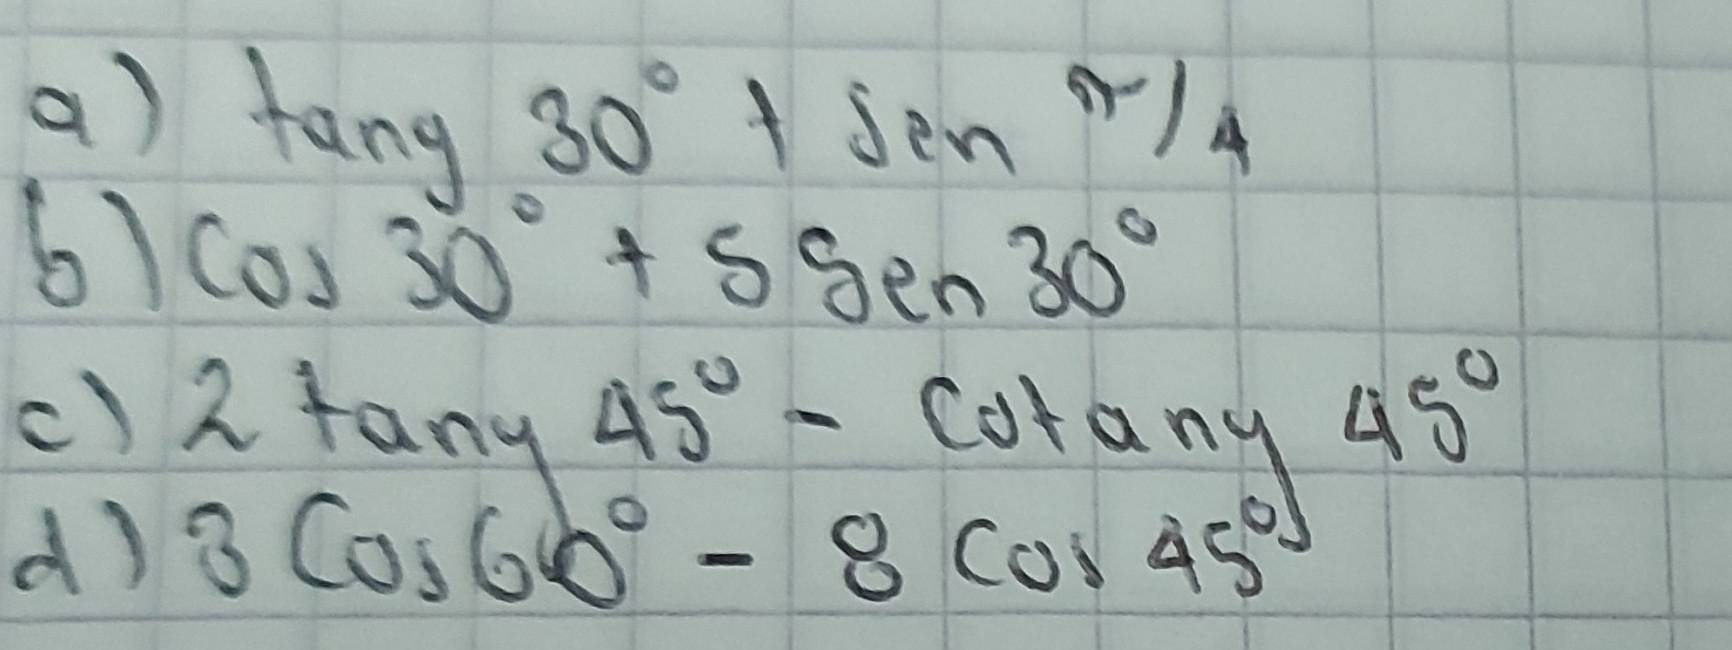 a) tang 30° + Sen π/4
b) Cos 30° + 5 Sen 30°
c) 2 tang 45° - Cotang 45°
d) 3 Cos 60° - 8 Cos 45°